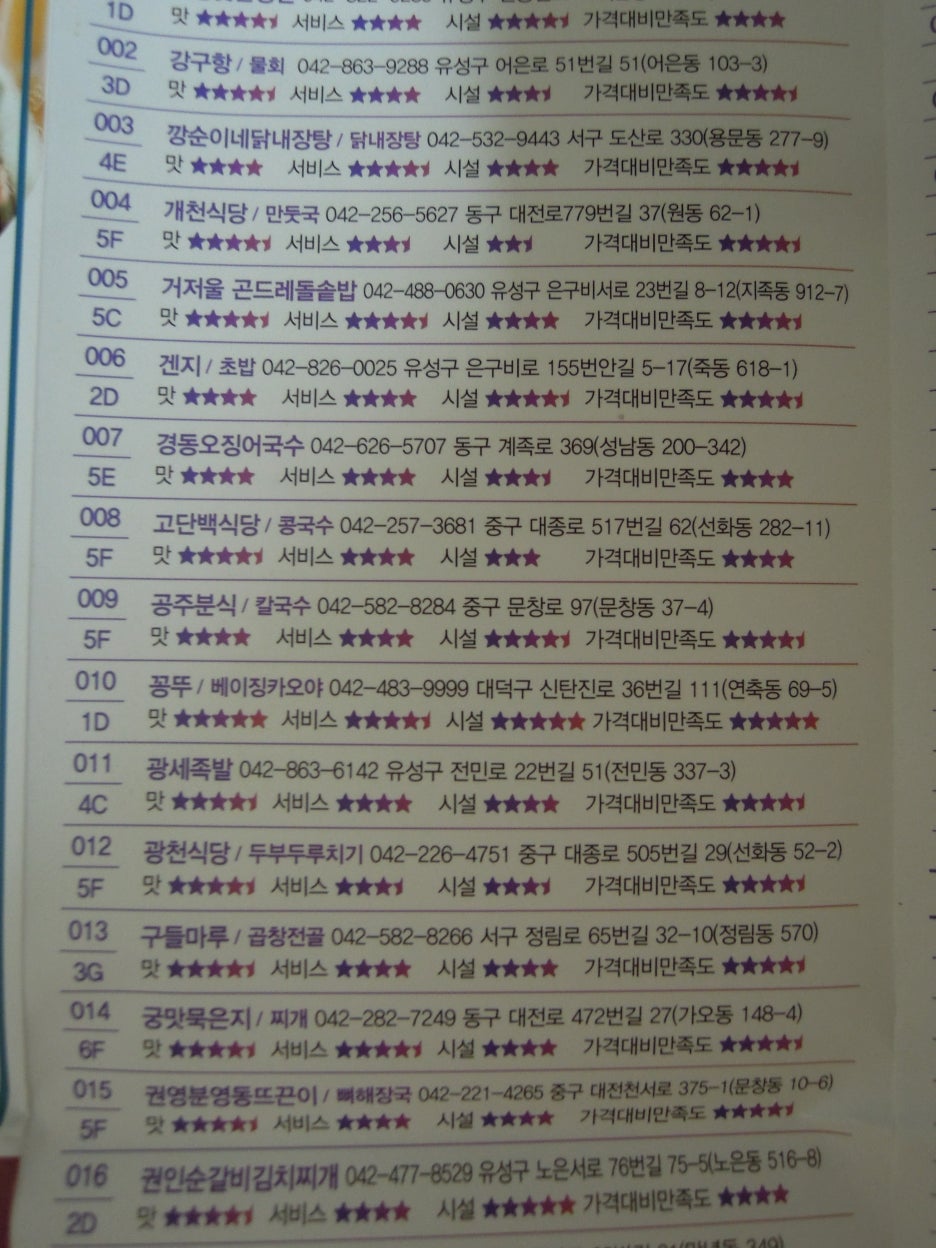 1D 맛 ★★★★⯨ 서비스 ★★★★ 시설 ★★★★⯨ 가격대비만족도 ★★★★
002 강구항 / 물회 042-863-9288 유성구 어은로 51번길 51(어은동 103-3)
3D 맛 ★★★★⯨ 서비스 ★★★★ 시설 ★★★⯨ 가격대비만족도 ★★★★⯨
003 깡순이네닭내장탕 / 닭내장탕 042-532-9443 서구 도산로 330(용문동 277-9)
4E 맛 ★★★★ 서비스 ★★★★⯨ 시설 ★★★★ 가격대비만족도 ★★★★⯨
004 개천식당 / 만둣국 042-256-5627 동구 대전로779번길 37(원동 62-1)
5F 맛 ★★★★⯨ 서비스 ★★★⯨ 시설 ★★⯨ 가격대비만족도 ★★★★⯨
005 거저울 곤드레돌솥밥 042-488-0630 유성구 은구비서로 23번길 8-12(지족동 912-7)
5C 맛 ★★★★⯨ 서비스 ★★★★⯨ 시설 ★★★★ 가격대비만족도 ★★★★⯨
006 겐지 / 초밥 042-826-0025 유성구 은구비로 155번안길 5-17(죽동 618-1)
2D 맛 ★★★★ 서비스 ★★★★ 시설 ★★★★⯨ 가격대비만족도 ★★★★⯨
007 경동오징어국수 042-626-5707 동구 계족로 369(성남동 200-342)
5E 맛 ★★★★ 서비스 ★★★★ 시설 ★★★⯨ 가격대비만족도 ★★★★
008 고단백식당 / 콩국수 042-257-3681 중구 대종로 517번길 62(선화동 282-11)
5F 맛 ★★★★⯨ 서비스 ★★★★ 시설 ★★★ 가격대비만족도 ★★★★
009 공주분식 / 칼국수 042-582-8284 중구 문창로 97(문창동 37-4)
5F 맛 ★★★★ 서비스 ★★★★ 시설 ★★★★⯨ 가격대비만족도 ★★★★⯨
010 꽁뚜 / 베이징카오야 042-483-9999 대덕구 신탄진로 36번길 111(연축동 69-5)
1D 맛 ★★★★★ 서비스 ★★★★⯨ 시설 ★★★★★ 가격대비만족도 ★★★★★
011 광세족발 042-863-6142 유성구 전민로 22번길 51(전민동 337-3)
4C 맛 ★★★★⯨ 서비스 ★★★★ 시설 ★★★★ 가격대비만족도 ★★★★⯨
012 광천식당 / 두부두루치기 042-226-4751 중구 대종로 505번길 29(선화동 52-2)
5F 맛 ★★★★⯨ 서비스 ★★★⯨ 시설 ★★★⯨ 가격대비만족도 ★★★★⯨
013 구들마루 / 곱창전골 042-582-8266 서구 정림로 65번길 32-10(정림동 570)
3G 맛 ★★★★⯨ 서비스 ★★★★ 시설 ★★★★ 가격대비만족도 ★★★★⯨
014 궁맛묵은지 / 찌개 042-282-7249 동구 대전로 472번길 27(가오동 148-4)
6F 맛 ★★★★⯨ 서비스 ★★★★⯨ 시설 ★★★★ 가격대비만족도 ★★★★⯨
015 권영분영동뜨끈이 / 뼈해장국 042-221-4265 중구 대전천서로 375-1(문창동 10-6)
5F 맛 ★★★★⯨ 서비스 ★★★★ 시설 ★★★★ 가격대비만족도 ★★★★⯨
016 권인순갈비김치찌개 042-477-8529 유성구 노은서로 76번길 75-5(노은동 516-8)
2D 맛 ★★★★⯨ 서비스 ★★★★ 시설 ★★★★★ 가격대비만족도 ★★★★